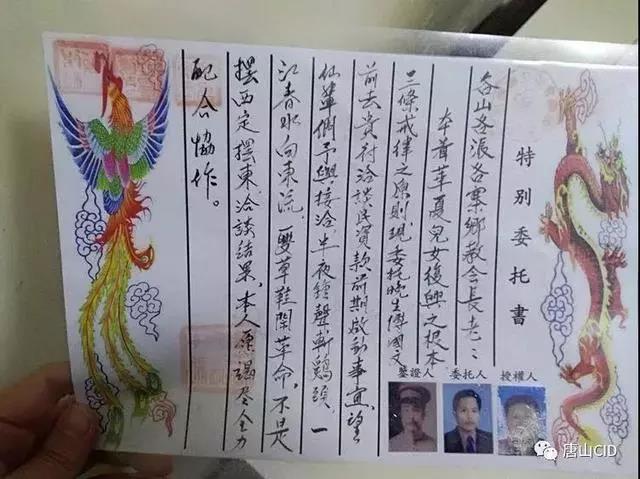 特別委托書
各山各派各寨鄉教會長老:
本着華夏兒女復興之根本
三條戒律之原則,現委托晚生傅國文
前去貴村洽談民資款前期啟動事宜,望
仙輩們予與接洽,半夜鐘聲斬鷄頭,一
江春水向東流,一雙草鞋開革命,不是
擺西定擺東洽談結果,本人原竭尽全力
配合協作。
授權人
委托人
鑒證人
唐山CID